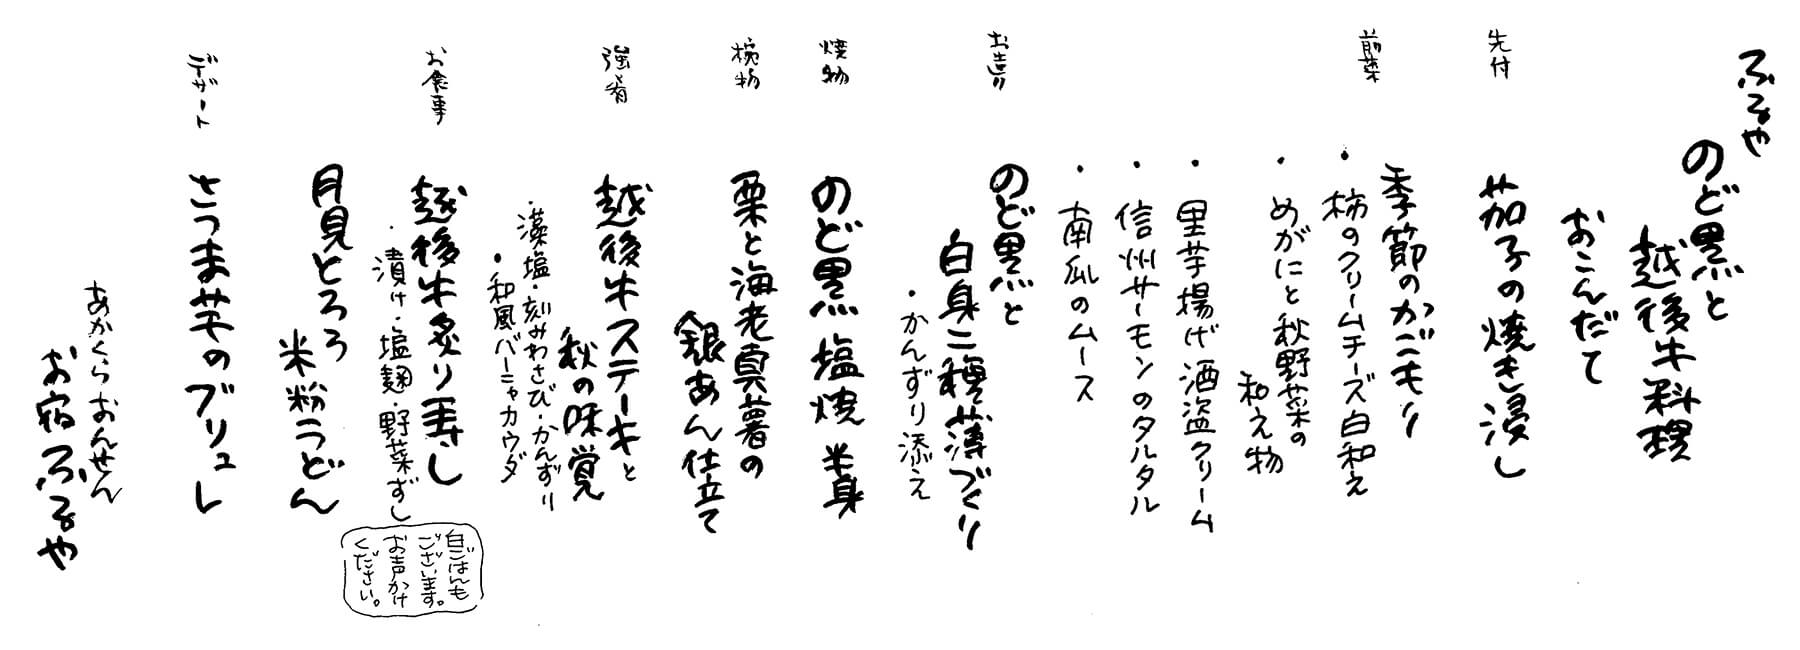 ふるや
のど黒と
越後牛料理
おこんだて
先付
茄子の焼き浸し
前菜
季節のかごもり
・柿のクリームチーズ白和え
・めがにと秋野菜の
和え物
・里芋揚げ酒盗クリーム
・信州サーモンのタルタル
・南瓜のムース
お造り
のど黒と
白身二種薄づくり
・かんずり添え
焼物
のど黒塩焼 半身
椀物
栗と海老真薯の
銀あん仕立て
強肴
越後牛ステーキと
秋の味覚
・藻塩・刻みわさび・かんずり
・和風バーニャカウダ
お食事
越後牛炙り寿し
・漬け・塩麹・野菜ずし
白ごはんも
ございます。
お声かけ
ください。
月見とろろ
米粉うどん
デザート
さつま芋のブリュレ
あかくらおんせん
お宿ふるや